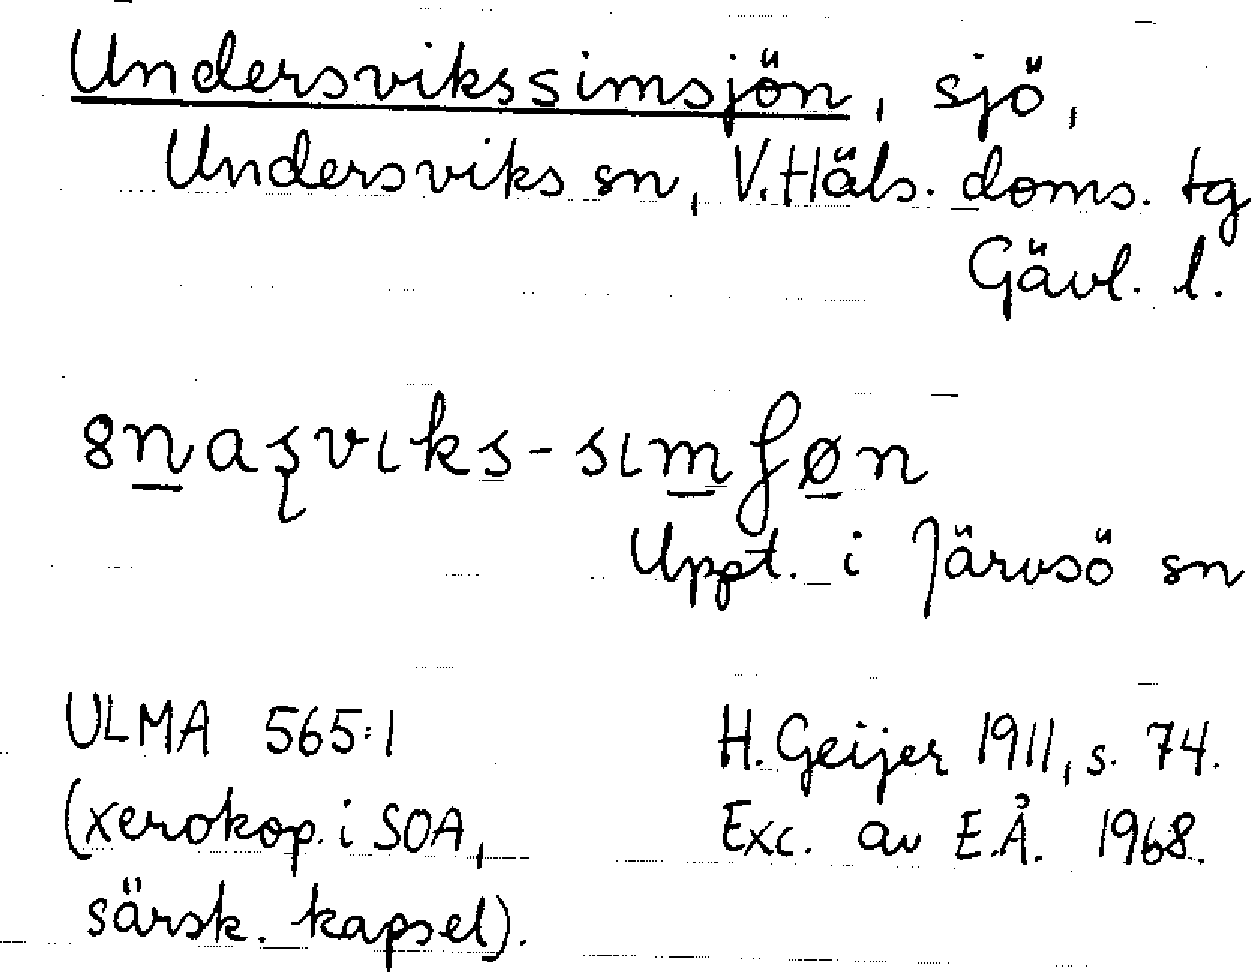 Undersvikssimsjön, sjö,
Undersviks sn, V. Häls. doms. tg
Gävl. l.
Uppt. i Järvsö sn
ULMA 565:1
H. Geijer 1911, s. 74.
(xerokop. i SOA,
Exc. av E.Å. 1968.
särsk. kapsel).